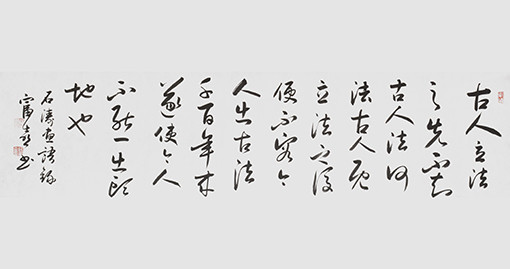 古人立法
之先不知
古人法何
法古人既
立法之後
便不容今
人出古法
千百年来
遂使今人
不能一出頭
地也
石濤画語録
书